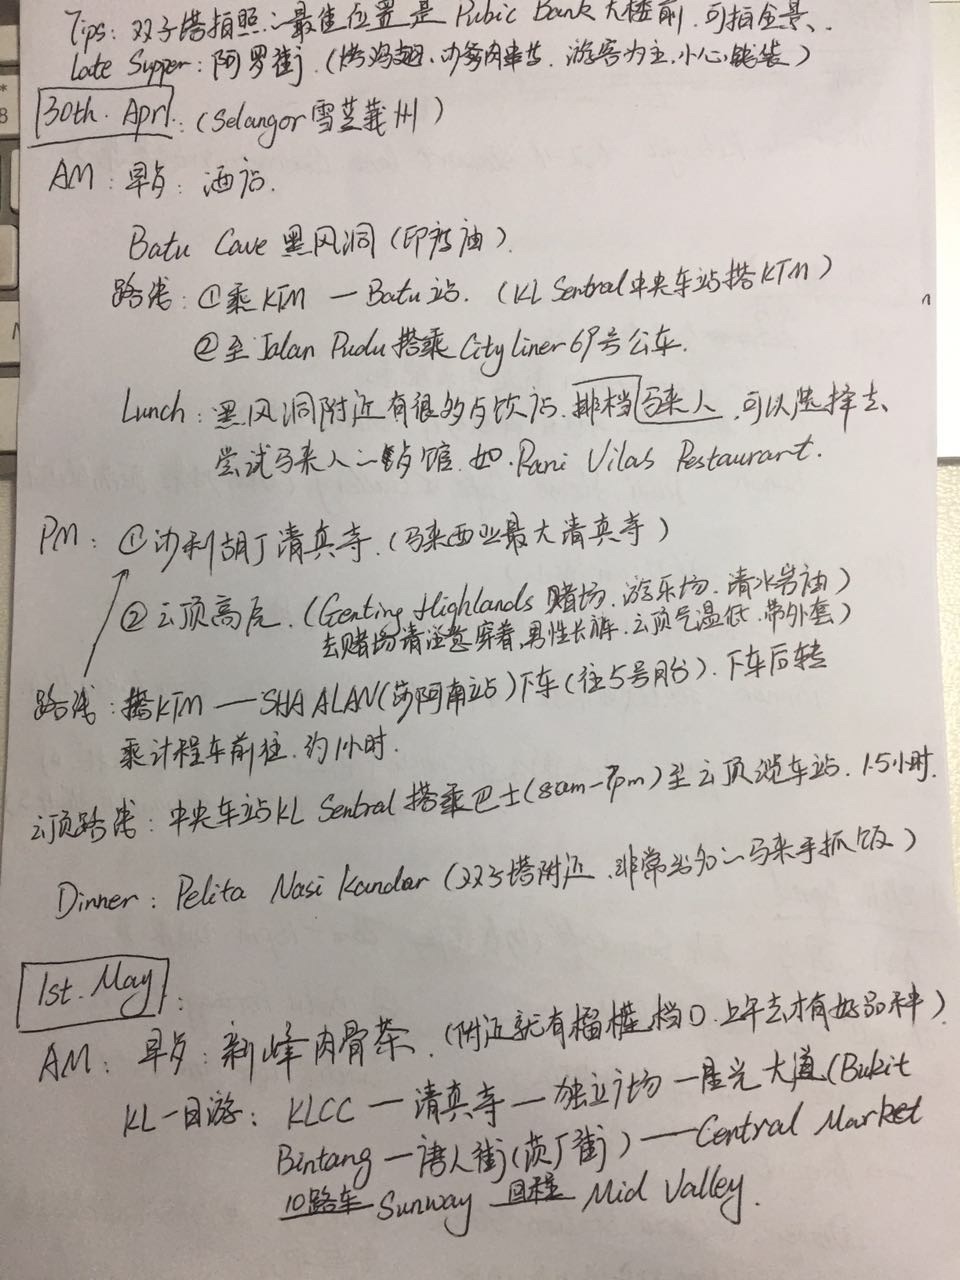 Tips: 双子塔拍照の最佳位置是 Pubic Bank 大楼前, 可拍全景、
Late Supper: 阿罗街. (烤鸡翅、沙爹肉串等. 游客为主, 小心钱袋)
30th. Aprl: (Selangor 雪兰莪州)
AM: 早点: 酒店.
Batu Cave 黑风洞 (印度庙).
路线: ①乘KTM — Batu站. (KL Sentral中央车站搭KTM)
②至Jalan Pudu搭乘Cityliner 69号公车.
Lunch: 黑风洞附近有很多点饮店. 排档 马来人 可以选择去、
尝试马来人の餐馆. 如. Rani Vilas Restaurant.
PM: ①沙利胡丁清真寺. (马来西亚最大清真寺)
②云顶高原. (Genting Highlands 赌场. 游乐场. 清水岩庙)
去赌场请注意穿着, 男性长裤. 云顶气温低. 带外套)
路线: 搭KTM — SHA ALAN(莎阿南站)下车(往5号月台). 下车后转
乘计程车前往. 约1小时.
云顶路线: 中央车站KL Sentral 搭乘巴士(8am-7pm)至云顶缆车站. 1.5小时.
Dinner: Pelita Nasi Kandar (双子塔附近. 非常出名の马来手抓饭)
1st. May:
AM: 早点: 新峰肉骨茶. (附近就有榴梿档口. 上午去才有好品种)
KL一日游: KLCC — 清真寺 — 独立广场 — 星光大道(Bukit
Bintang — 唐人街(茨厂街) — Central Market
10路车 Sunway 回程 Mid Valley.